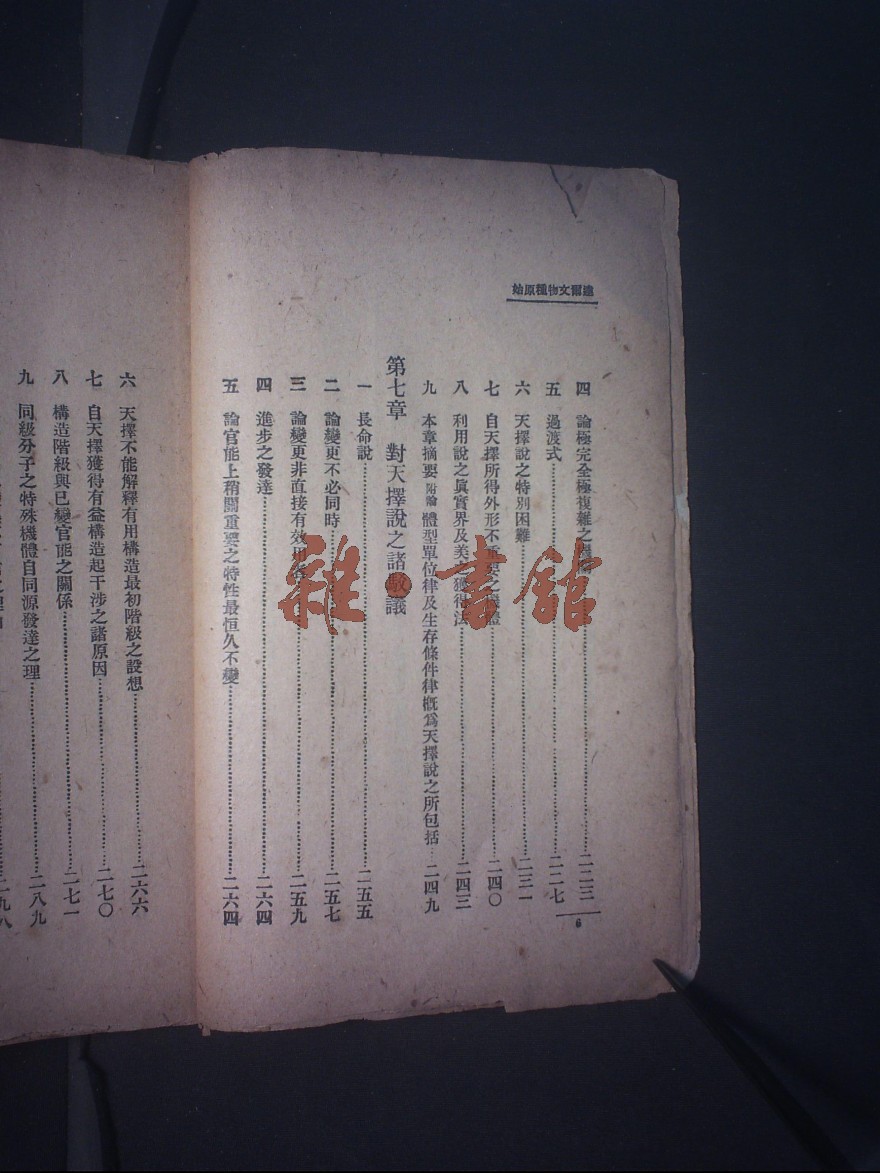 達爾文物種原始
四 論極完全極複雜之……二二三
五 過渡式……二二七
六 天擇說之特別困難……二三一
七 自天擇所得外形不重要之機體……二四〇
八 利用說之眞實界及美之獲得法……二四三
九 本章摘要 附論 體型單位律及生存條件律概爲天擇說之所包括……二四九
第七章 對天擇說之諸駁議
一 長命說……二五五
二 論變更不必同時……二五七
三 論變更非直接有效用……二五九
四 進步之發達……二六四
五 論官能上稍關重要之特性最恒久不變……二六四
6
六 天擇不能解釋有用構造最初階級之設想……二六六
七 自天擇獲得有益構造起干涉之諸原因……二七〇
八 構造階級與已變官能之關係……二七一
九 同級分子之特殊機體自同源發達之理……二八九
二九八
雜·書館